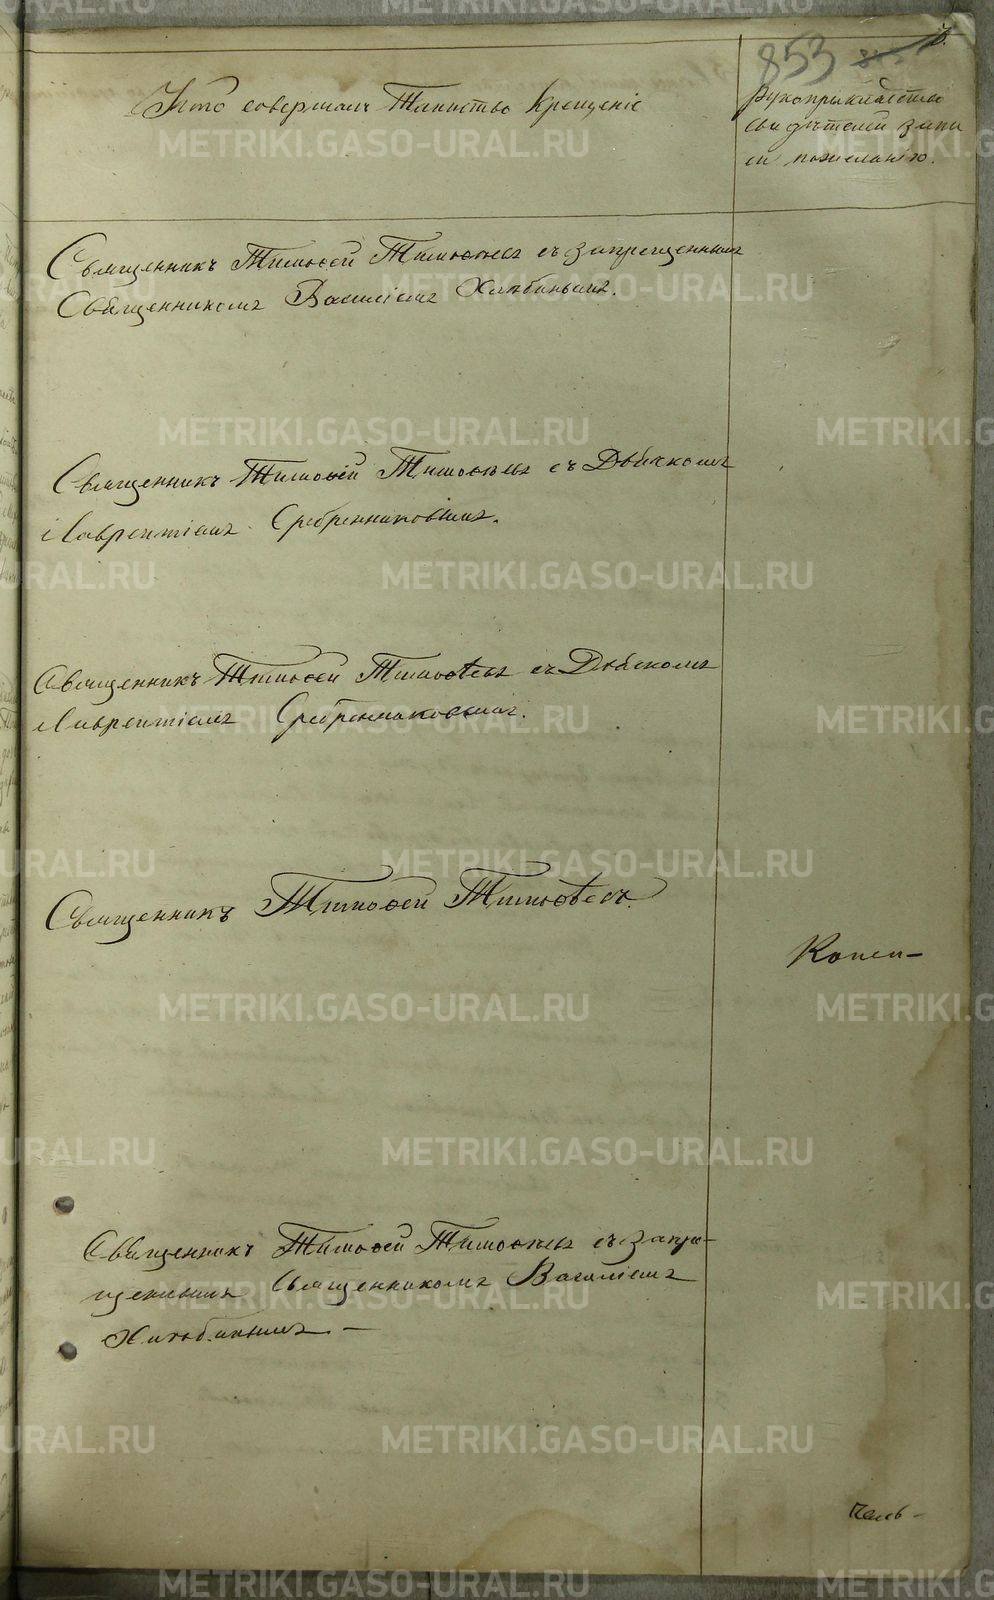 853
Кто совершалъ Таинство Крещенiе
Рукоприкладство
свидѣтелей запи
си по желанiю.
Священникъ Тимоѳей Тимоѳеевъ съ запрещеннымъ
Священникомъ Василiемъ Хлѣбинымъ.
Священникъ Тимоѳей Тимоѳеевъ съ Дьячкомъ
Лаврентiемъ Сребренниковымъ.
Священникъ Тимоѳей Тимоѳеевъ съ Дьячкомъ
Лаврентiемъ Сребренниковымъ.
Священникъ Тимоѳей Тимоѳеевъ.
Копеи-
Священникъ Тимоѳей Тимоѳеевъ съ запре-
щеннымъ Священникомъ Василiемъ
Хлѣбинымъ. —
METRIKI.GASO-URAL.RU